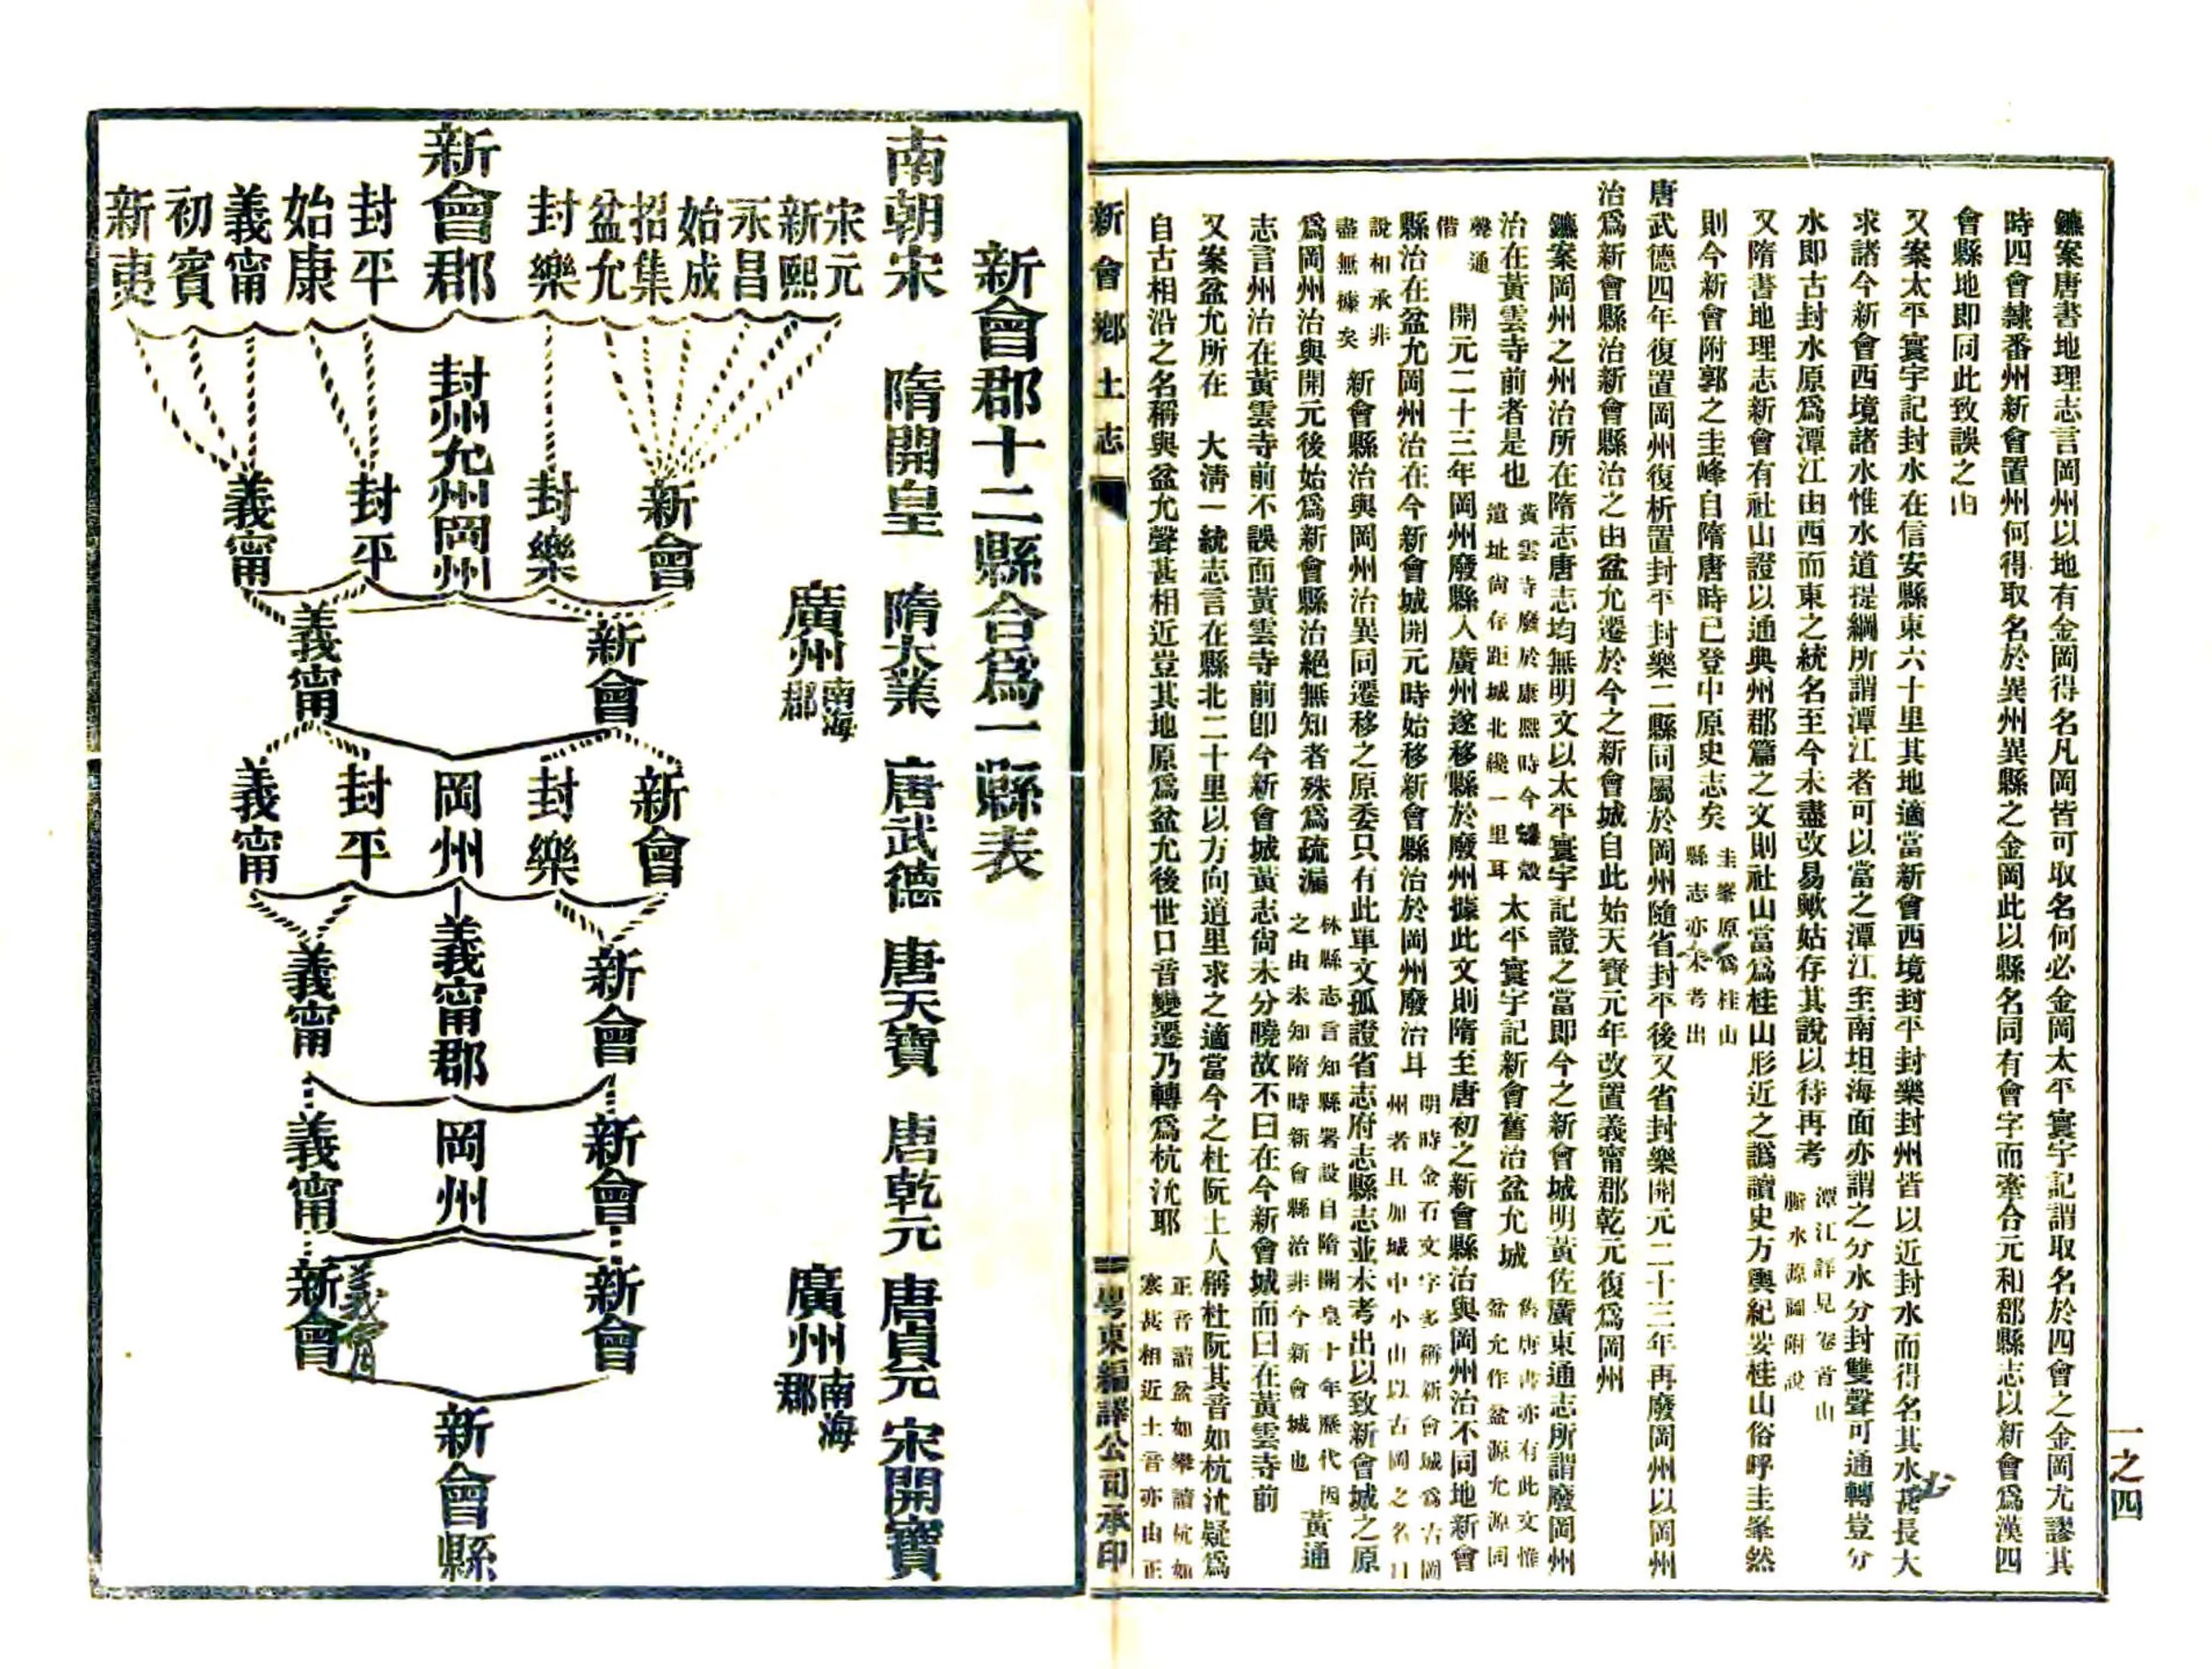 鑣案唐書地理志言岡州以地有金岡得名凡岡皆可取名何必金岡太平寰宇記謂取名於四會之金岡尤謬其
時四會隸番州新會置州何得取名於異州異縣之金岡此以縣名同有會字而牽合元和郡縣志以新會為漢四
會縣地即同此致誤之由
又案太平寰宇記封水在信安縣東六十里其地適當新會西境封平封樂封州皆以近封水而得名其水甚長大
求諸今新會西境諸水惟水道提綱所謂潭江者可以當之潭江至南坦海面亦謂之分水分封雙聲可通轉豈分
水即古封水原為潭江由西而東之統名至今未盡改易歟姑存其說以待再考
潭江詳見卷首山
脈水源圖附說
又隋書地理志新會有社山證以通典州郡篇之文則社山當為桂山形近之譌讀史方輿紀要桂山俗呼圭峯然
則今新會附郭之圭峰自隋唐時已登中原史志矣
圭峯原為桂山
縣志亦未考出
唐武德四年復置岡州復析置封平封樂二縣同屬於岡州隨省封平後又省封樂開元二十三年再廢岡州以岡州
治為新會縣治新會縣治之由盆允遷於今之新會城自此始天寶元年改置義甯郡乾元復為岡州
鑣案岡州之州治所在隋志唐志均無明文以太平寰宇記證之當即今之新會城明黃佐廣東通志所謂廢岡州
治在黃雲寺前者是也
黃雲寺廢於康熙時今蠔殼
遺址尚存距城北纔一里耳
太平寰宇記新會舊治盆允城
舊唐書亦有此文惟
盆允作盆源允源同
聲通
借
開元二十三年岡州廢縣入廣州遂移縣於廢州據此文則隋至唐初之新會縣治與岡州治不同地新會
縣治在盆允岡州治在今新會城開元時始移新會縣治於岡州廢治耳
明時金石文字多稱新會城為古岡
州者且加城中小山以古岡之名目
說相承非
盡無據矣
新會縣治與岡州治異同遷移之原委只有此單文孤證省志府志縣志並未考出以致新會城之原
為岡州治與開元後始為新會縣治絕無知者殊為疏漏
林縣志言知縣署設自隋開皇十年歷代因
之由未知隋時新會縣治非今新會城也
黃通
志言州治在黃雲寺前不誤而黃雲寺前卽今新會城黃志尚未分曉故不曰在今新會城而曰在黃雲寺前
又案盆允所在　大清一統志言在縣北二十里以方向道里求之適當今之杜阮土人稱杜阮其音如杭沈疑為
自古相沿之名稱與盆允聲甚相近豈其地原為盆允後世口音變遷乃轉為杭沈耶
正音讀盆如攀讀杭如
寒甚相近土音亦由正
新會鄉土志
粵東編譯公司承印
一之四
新會郡十二縣合為一縣表
南朝宋　隋開皇　隋大業　唐武德　唐天寶　唐乾元　唐貞元　宋開寶
廣州
南海
郡
廣州
南海
郡
宋元
新熙
永昌
始成
招集
盆允
封樂
新會郡
封平
始康
義甯
初賓
新夷
新會
封樂
封州允州岡州
封平
義甯
新會
義甯
新會
封樂
岡州
封平
義甯
新會
義甯郡
義甯
新會
岡州
義甯
新會
新會
義甯
新會縣